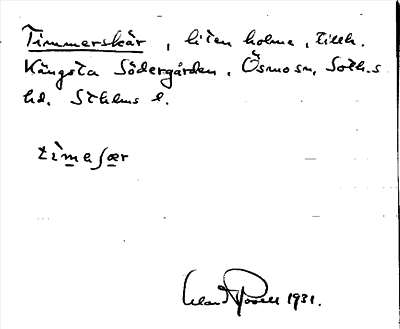 Timmerskär, liten holme, tillh.
Kängsta Södergården, Ösmo sn, Soth.s
hd. Sthlms l.
tìmeʃær
1931.